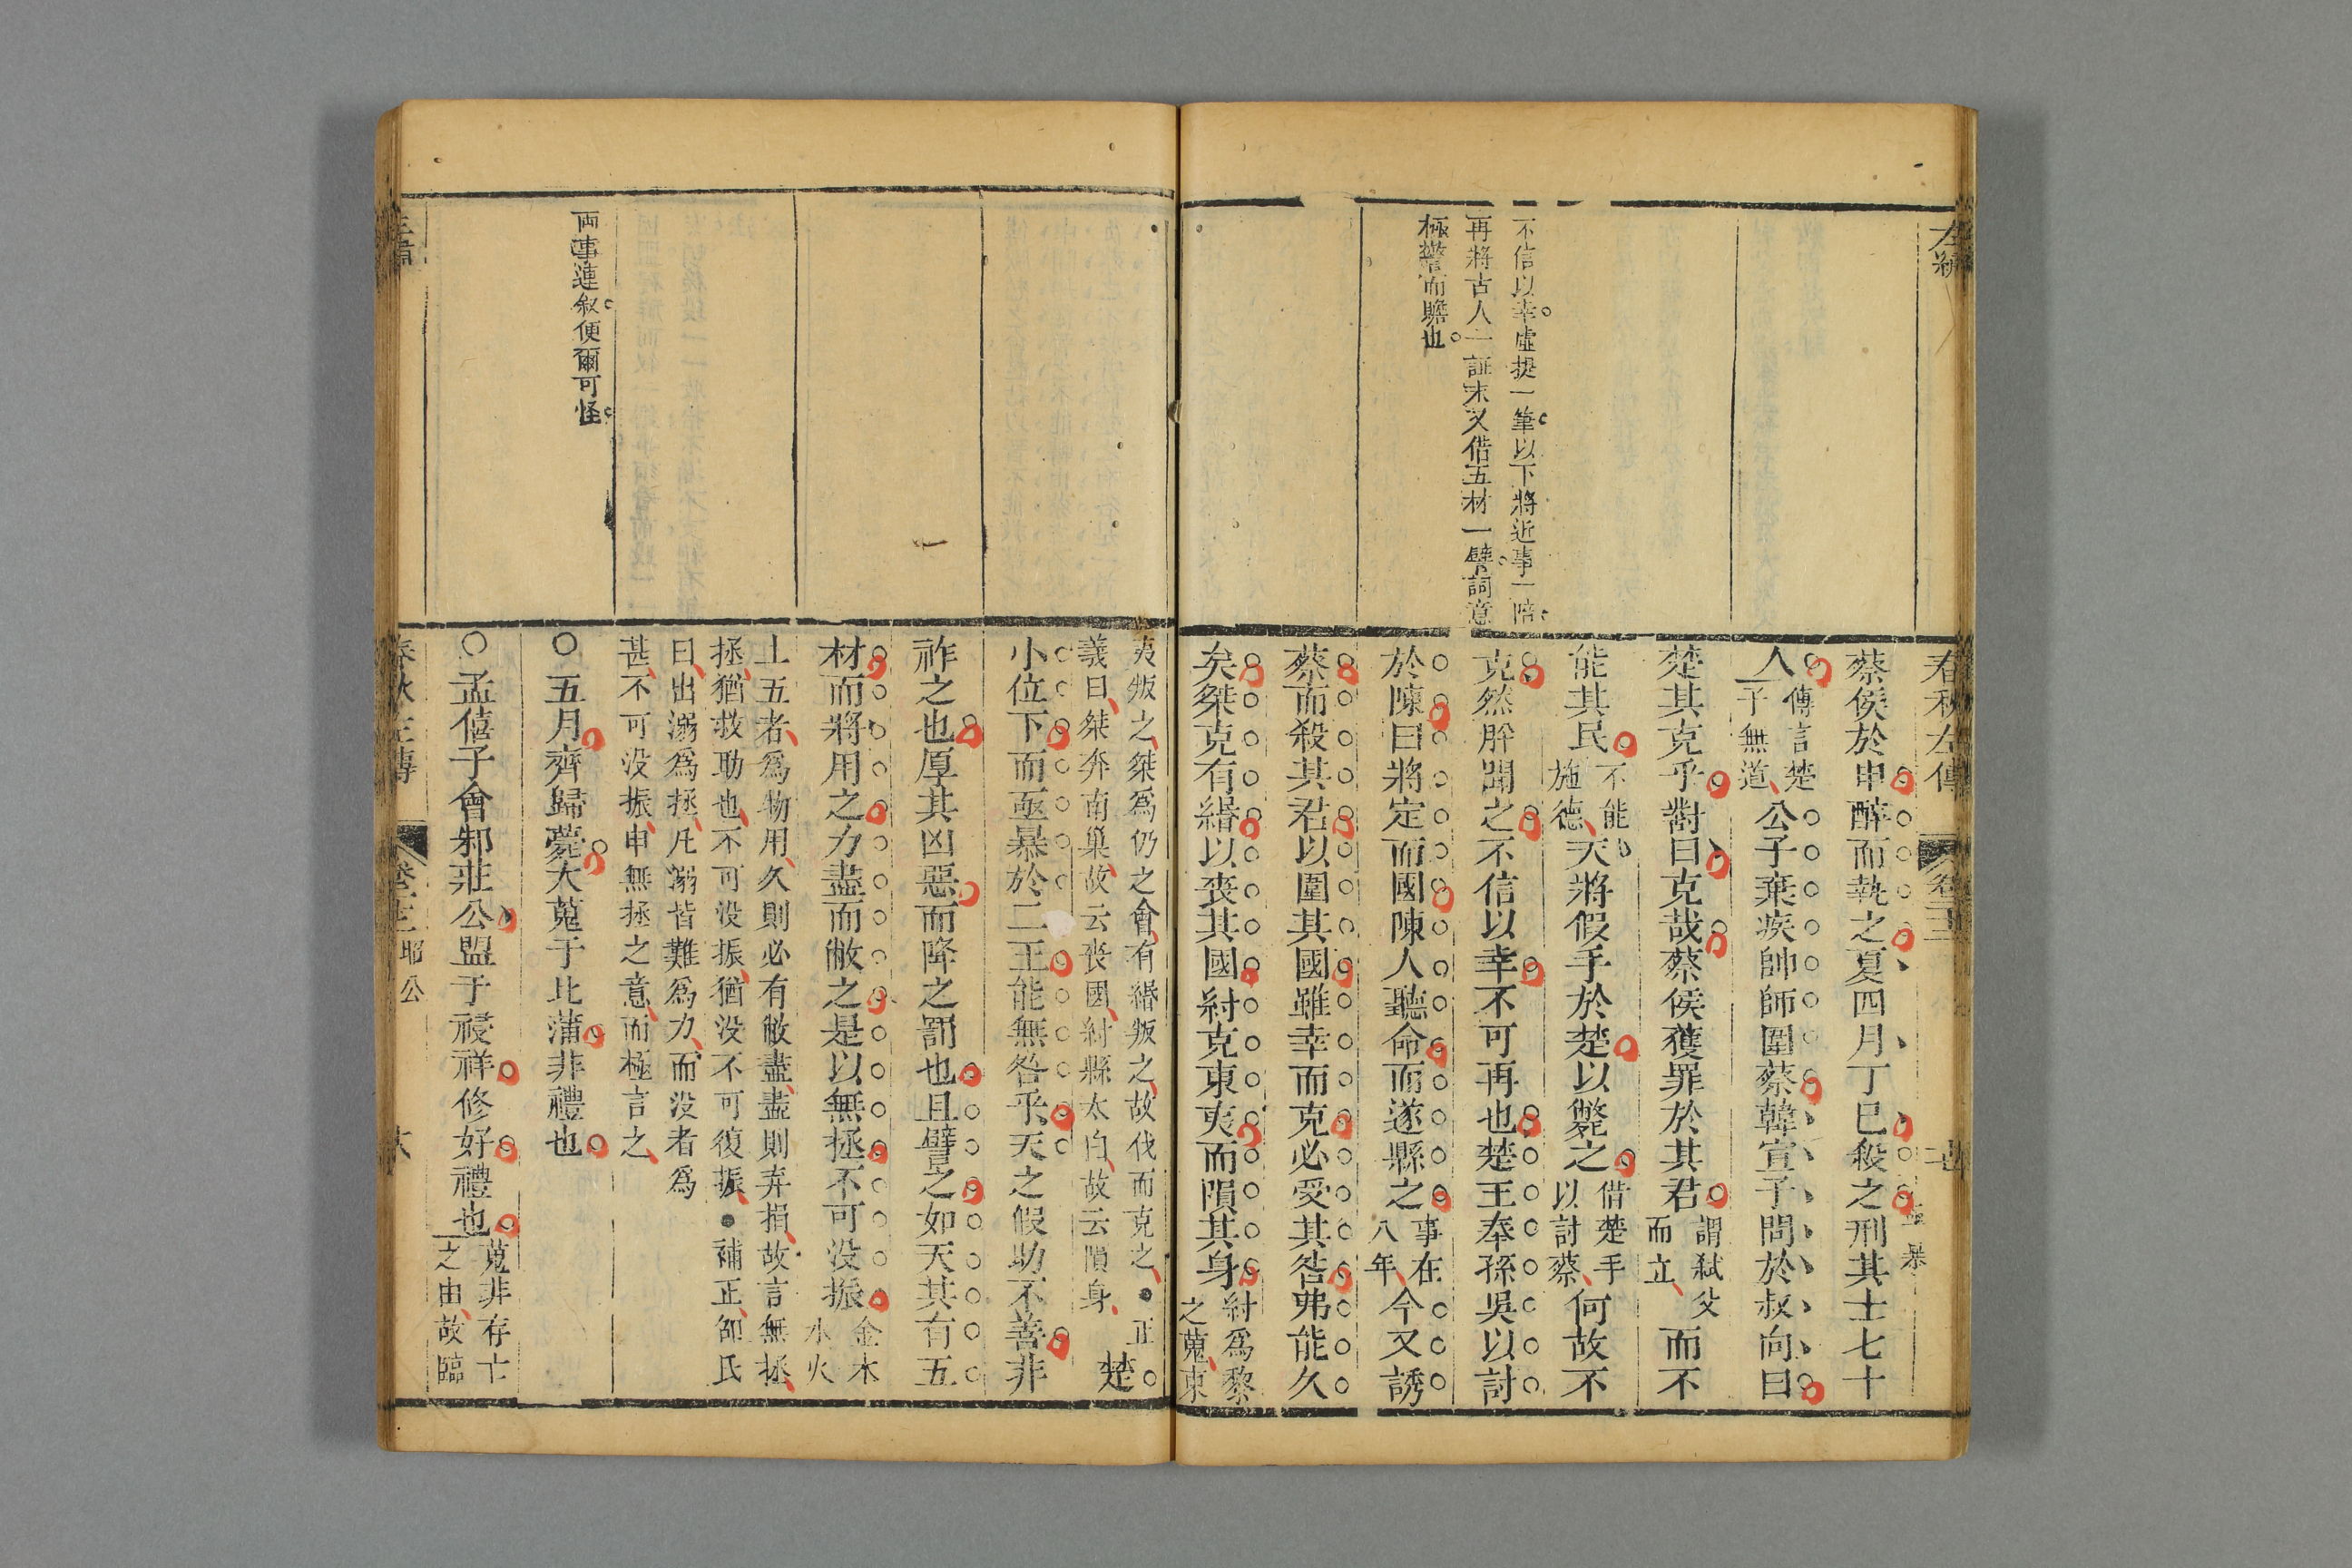 春秋左傳
蔡侯於申醉而執之夏四月丁巳殺之刑其士七十
人傳言楚子無道公子棄疾帥師圍蔡韓宣子問於叔向曰
楚其克乎對曰克哉蔡侯獲罪於其君謂弑父而立而不
能其民不能施德天將假手於楚以斃之借楚手以討蔡何故不
克然肸聞之不信以幸不可再也楚王奉孫吳以討
於陳曰將定而國陳人聽命而遂縣之事在八年今又誘
蔡而殺其君以圍其國雖幸而克必受其咎弗能久
矣桀克有緡以喪其國紂克東夷而隕其身紂爲黎之蒐東
不信以幸虛提一筆以下將近事一陪
再將古人一証末又借五材一譬詞意
極警而贍也
夷叛之桀爲仍之會有緡叛之故伐而克之●正
義曰桀奔南巢故云喪國紂縣太白故云隕身楚
小位下而亟暴於二王能無咎乎天之假助不善非
祚之也厚其凶惡而降之罰也且譬之如天其有五
材而將用之力盡而敝之是以無拯不可没振金木水火
土五者爲物用久則必有敝盡盡則弃捐故言無拯
拯猶救助也不可没振猶没不可復振●補正邵氏
曰出溺爲拯凡溺皆難爲力而没者爲
甚不可没振申無拯之意而極言之
○五月齊歸薨大蒐于比蒲非禮也
○孟僖子會邾莊公盟于祲祥修好禮也蒐非存亡之由故臨
兩事連叙便爾可怪
春秋左傳
昭公